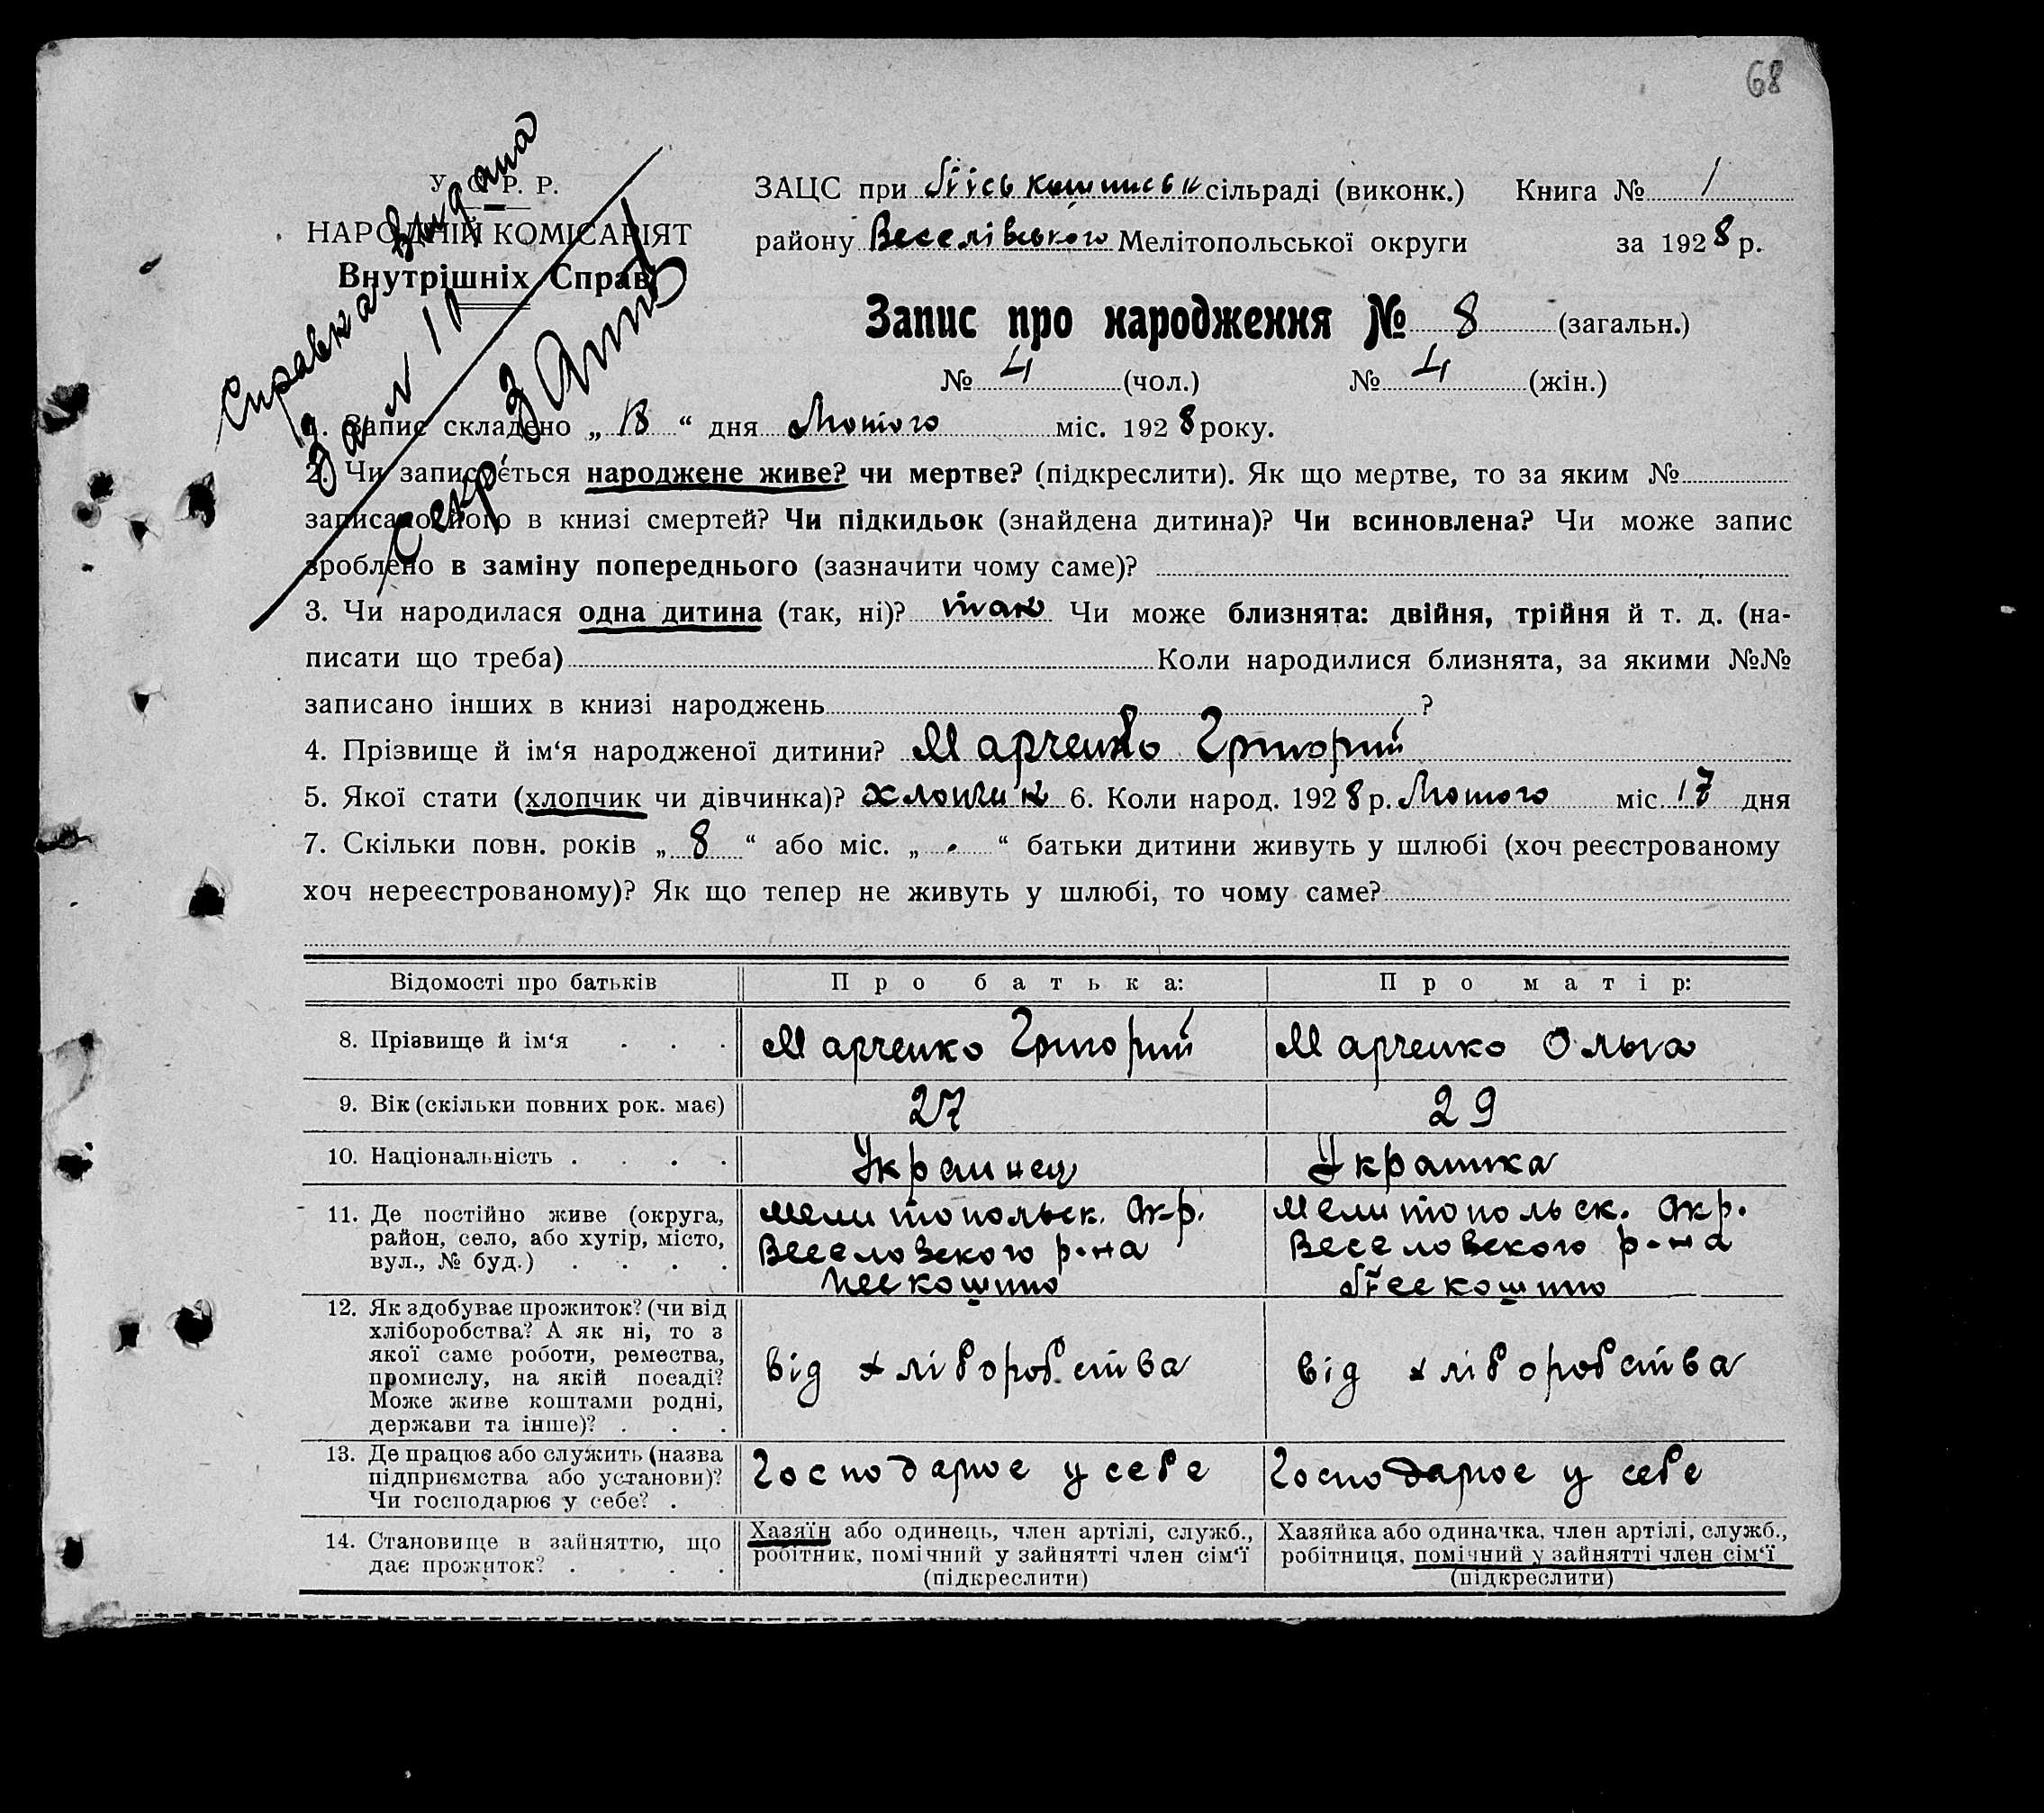 68
У. С. Р. Р.
НАРОДНІЙ КОМІСАРІЯТ
Внутрішніх Справ
Справка видана
За № 10
Секр
ЗАЦС при Піськошинськ сільраді (виконк.) Книга № 1
району Веселівського Мелітопольської округи за 1928 р.
Запис про народження № 8 (загальн.)
№ 4 (чол.) № 4 (жін.)
1. Запис складено „ 18 “ дня Лютого міс. 1928 року.
2. Чи записується народжене живе? чи мертве? (підкреслити). Як що мертве, то за яким №
записано його в книзі смертей? Чи підкидьок (знайдена дитина)? Чи всиновлена? Чи може запис
зроблено в заміну попереднього (зазначити чому саме)?
3. Чи народилася одна дитина (так, ні)? так Чи може близнята: двійня, трійня й т. д. (на-
писати що треба) Коли народилися близнята, за якими №№
записано інших в книзі народжень ?
4. Прізвище й ім‘я народженої дитини? Марченко Григорий
5. Якої стати (хлопчик чи дівчинка)? хлопчик 6. Коли народ. 1928 р. Лютого міс. 17 дня
7. Скільки повн. років „ 8 “ або міс. „ “ батьки дитини живуть у шлюбі (хоч реєстрованому
хоч нереєстрованому)? Як що тепер не живуть у шлюбі, то чому саме?
Відомості про батьків Про батька: Про матір:
8. Прізвище й ім‘я . . . Марченко Григорий Марченко Ольга
9. Вік (скільки повних рок. має) 27 29
10. Національність . . . . Украинец Украинка
11. Де постійно живе (округа,
район, село, або хутір, місто,
вул., № буд.) . . . .
Мелитопольск. Окр.
Веселовского р-на
Пескошино
Мелитопольск. Окр.
Веселовского р-на
Пескошино
12. Як здобуває прожиток? (чи від
хліборобства? А як ні, то з
якої саме роботи, ремества,
промислу, на якій посаді?
Може живе коштами родні,
держави та інше)? . . .
від хліборобства
від хліборобства
13. Де працює або служить (назва
підприємства або установи)?
Чи господарює у себе? .
Господарює у себе
Господарює у себе
14. Становище в зайняттю, що
дає прожиток? . . . .
Хазяїн або одинець, член артілі, служб.,
робітник, помічний у зайнятті член сім‘ї
(підкреслити)
Хазяйка або одиначка, член артілі, служб.,
робітниця, помічний у зайнятті член сім‘ї
(підкреслити)